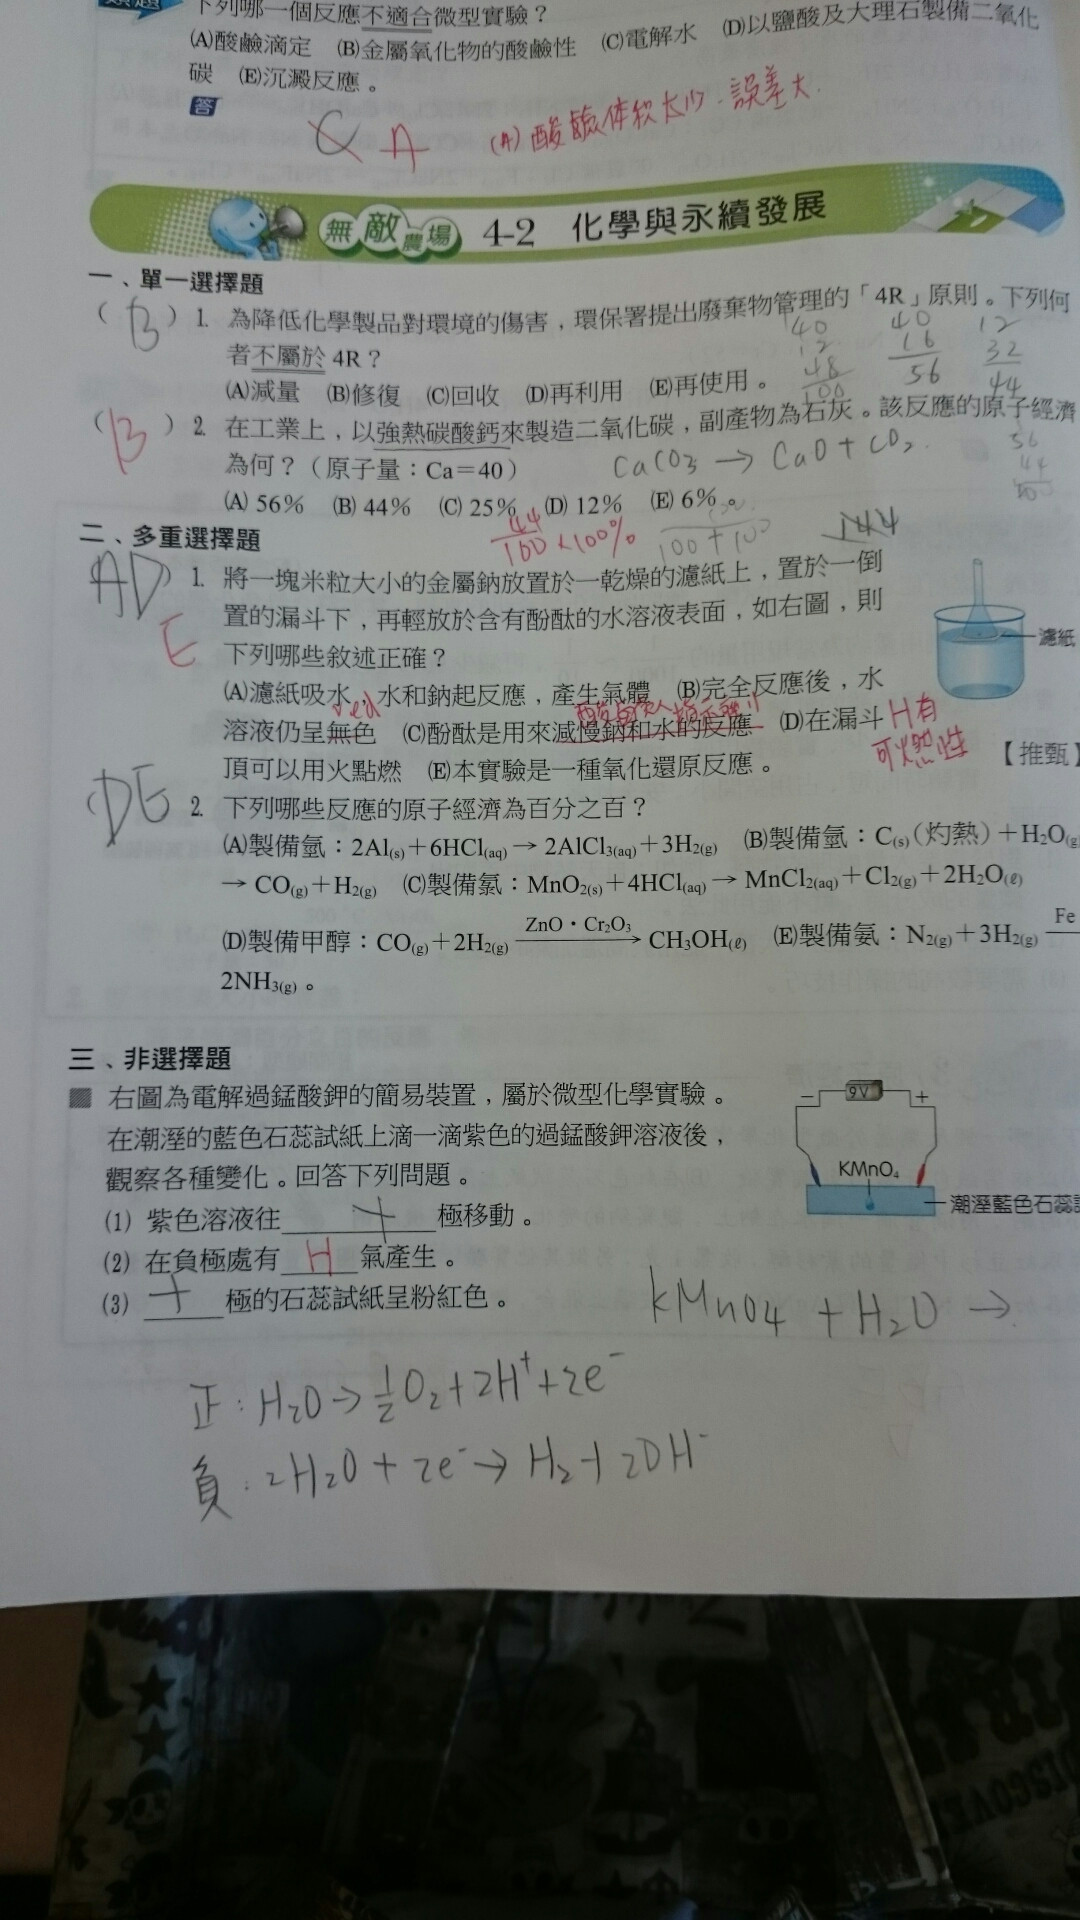 下列哪一個反應不適合微型實驗？
(A)酸鹼滴定　(B)金屬氧化物的酸鹼性　(C)電解水　(D)以鹽酸及大理石製備二氧化
碳　(E)沉澱反應。
答
A (A)酸鹼体积太少．誤差大.
無敵農場 4-2 化學與永續發展
一、單一選擇題
( B ) 1. 為降低化學製品對環境的傷害，環保署提出廢棄物管理的「4R」原則。下列何
者不屬於 4R？
(A)減量　(B)修復　(C)回收　(D)再利用　(E)再使用。
40 12 48 100
40 16 56
12 32 44
( B ) 2. 在工業上，以強熱碳酸鈣來製造二氧化碳，副產物為石灰。該反應的原子經濟
為何？（原子量：Ca＝40）
CaCO3 → CaO + CO2
56 44 100
(A) 56%　(B) 44%　(C) 25%　(D) 12%　(E) 6%。
44/100 × 100%
100+100
144
二、多重選擇題
AD E ) 1. 將一塊米粒大小的金屬鈉放置於一乾燥的濾紙上，置於一倒
置的漏斗下，再輕放於含有酚酞的水溶液表面，如右圖，則
下列哪些敘述正確？
濾紙
(A)濾紙吸水，水和鈉起反應，產生氣體　(B)完全反應後，水
red
溶液仍呈無色　(C)酚酞是用來減慢鈉和水的反應　(D)在漏斗
H有
可燃性
頂可以用火點燃　(E)本實驗是一種氧化還原反應。
【推甄】
( DE 2. 下列哪些反應的原子經濟為百分之百？
(A)製備氫：2Al(s)＋6HCl(aq) → 2AlCl3(aq)＋3H2(g)　(B)製備氫：C(s)（灼熱）＋H2O(g)
→ CO(g)＋H2(g)　(C)製備氯：MnO2(s)＋4HCl(aq) → MnCl2(aq)＋Cl2(g)＋2H2O(ℓ)
(D)製備甲醇：CO(g)＋2H2(g) ZnO・Cr2O3→ CH3OH(ℓ)　(E)製備氨：N2(g)＋3H2(g) Fe
2NH3(g)。
三、非選擇題
右圖為電解過錳酸鉀的簡易裝置，屬於微型化學實驗。
在潮溼的藍色石蕊試紙上滴一滴紫色的過錳酸鉀溶液後，
觀察各種變化。回答下列問題。
− 9V +
KMnO4
潮溼藍色石蕊試
(1) 紫色溶液往 + 極移動。
(2) 在負極處有 H 氣產生。
(3) + 極的石蕊試紙呈粉紅色。
KMnO4 + H2O →
正：H2O → 1/2 O2 + 2H+ + 2e-
負：2H2O + 2e- → H2 + 2OH-